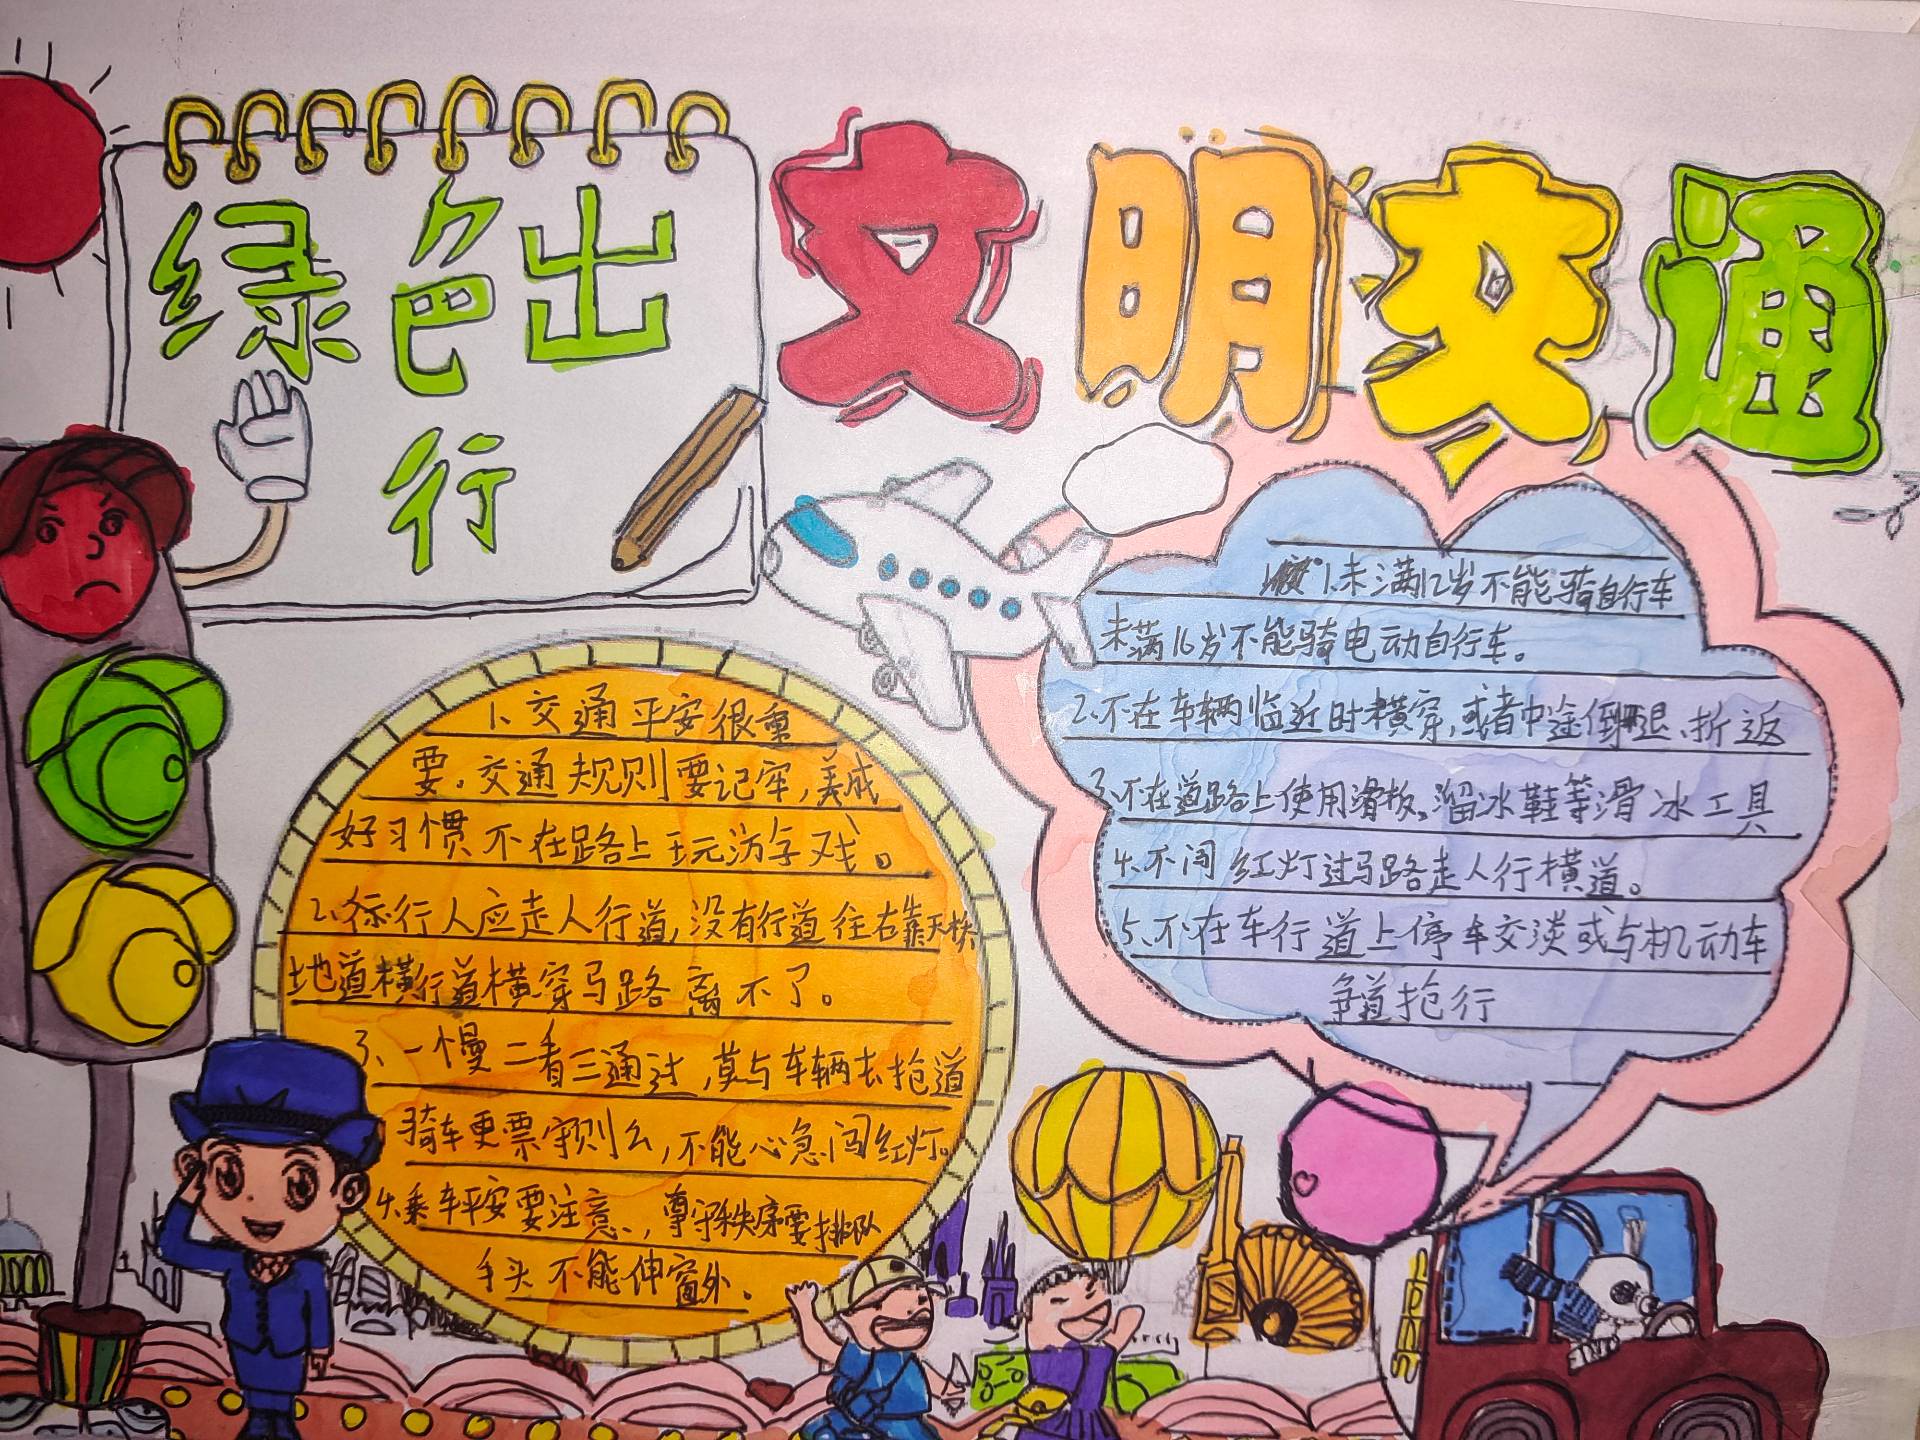 绿色出
行
文明交通
1、交通平安很重
要,交通规则要记牢,养成
好习惯不在路上玩游戏。
2、行人应走人行道,没有行道往右靠天
地道横行道横穿马路离不了。
3、一慢二看三通过,莫与车辆去抢道
骑车更要守则么,不能心急闯红灯。
4.乘车平安要注意,尊守秩序要排队
手头不能伸窗外。
1.未满12岁不能骑自行车
未满16岁不能骑电动自行车。
2、不在车辆临近时横穿,或者中途倒退、折返
3、不在道路上使用滑板、溜冰鞋等滑冰工具
4、不闯红灯过马路走人行横道。
5、不在车行道上停车交淡或与机动车
争道抢行